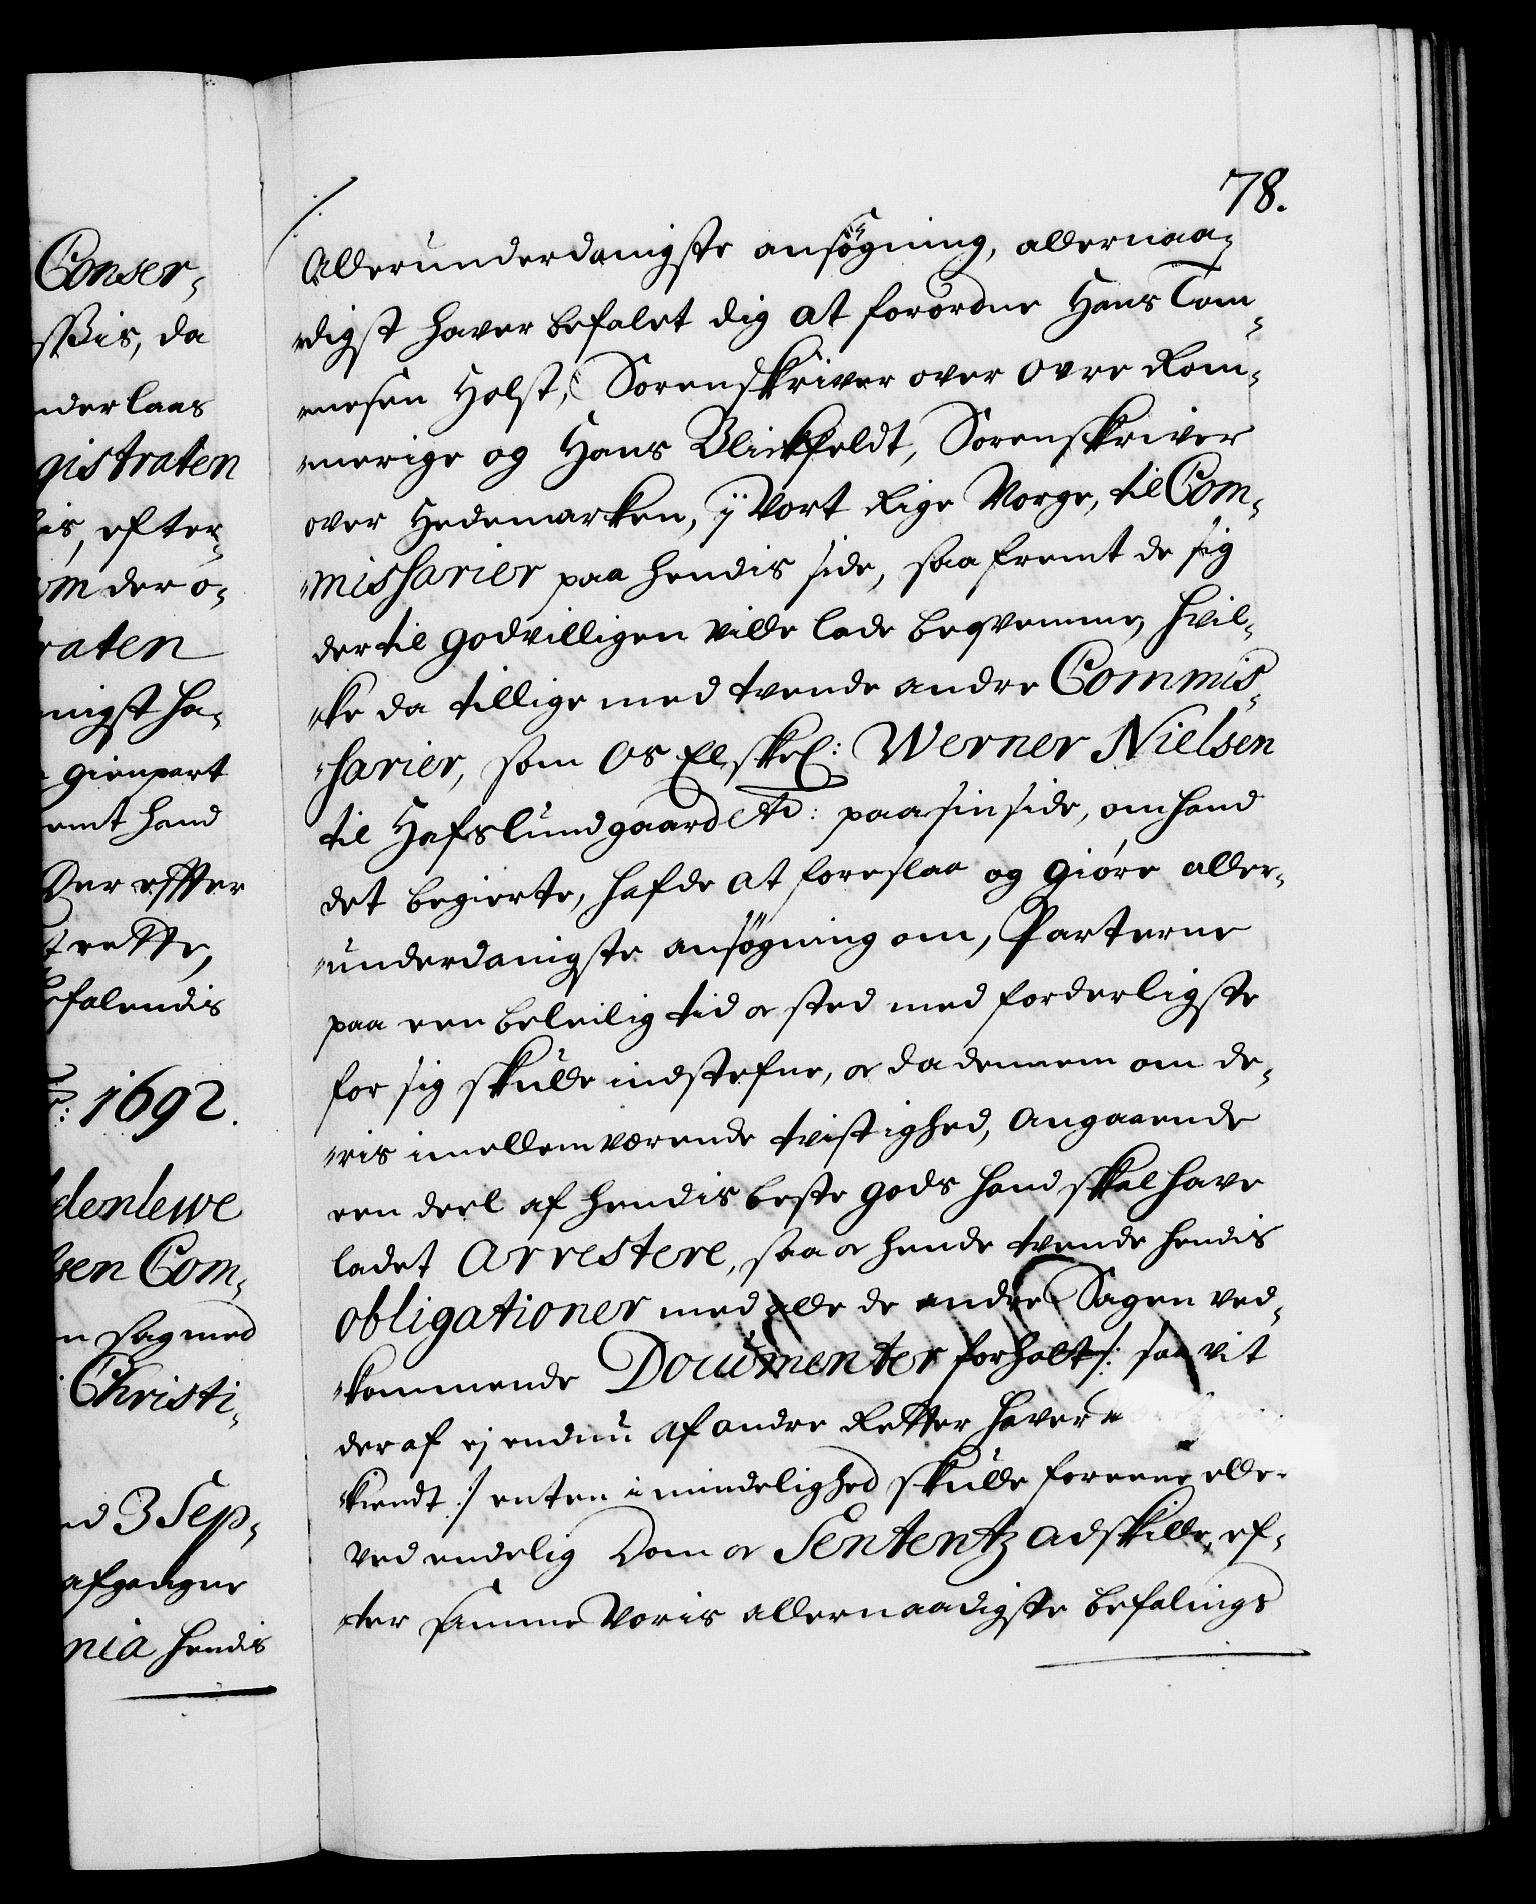 Conser-
ssis, da
nderlaas
gistraten
is, efter-
om der o-
raten
nigst ha-
gienpart
emt hand
Der effter
t rette,
efalendis
1692.
denlewe
sen Com-
n sag med
Christi-
nd 3 Sep-
afgangne
nia hendis
78.
Allerunderdanigste ansøgning, allernaa-
digst haver befalet dig at forordne Hans Tom-
mesen Holst, Sorenskriver over Ovre Rom-
merige og Hans Blickfeldt, Sorenskriver
over Hedemarken, ÿ Vort Rige Norge, til Com-
missarier paa hendis side, saafremt de sig
dertil godvilligen ville lade beqvemme, hvil-
ke da tillige med tvende andre Commis-
sarier, som Os Elskel: Werner Nielsen
til Hafslundgaard Etc: paa sin side, om hand
det begierte, hafde at foreslaa og giøre aller-
underdanigste ansøgning om, Parterne
paa een beleilig tid oc sted med forderligste
for sig skulle indstefne, oc da dennem om de-
ris imellemværende tvistighed, Angaaende
een deel af hendis beste gods hand skal have
ladet Arrestere, saa oc hende tvende hendis
obligationer med alle de andre Sagen ved-
kommende Documenter forholt /: saa vit
deraf ej endnu af andre Retter haver
kiendt :/ enten i mindelighed skulle foreene eller
ved endelig Dom oc Sententz adskille, ef-
ter samme Voris allernaadigste befalings